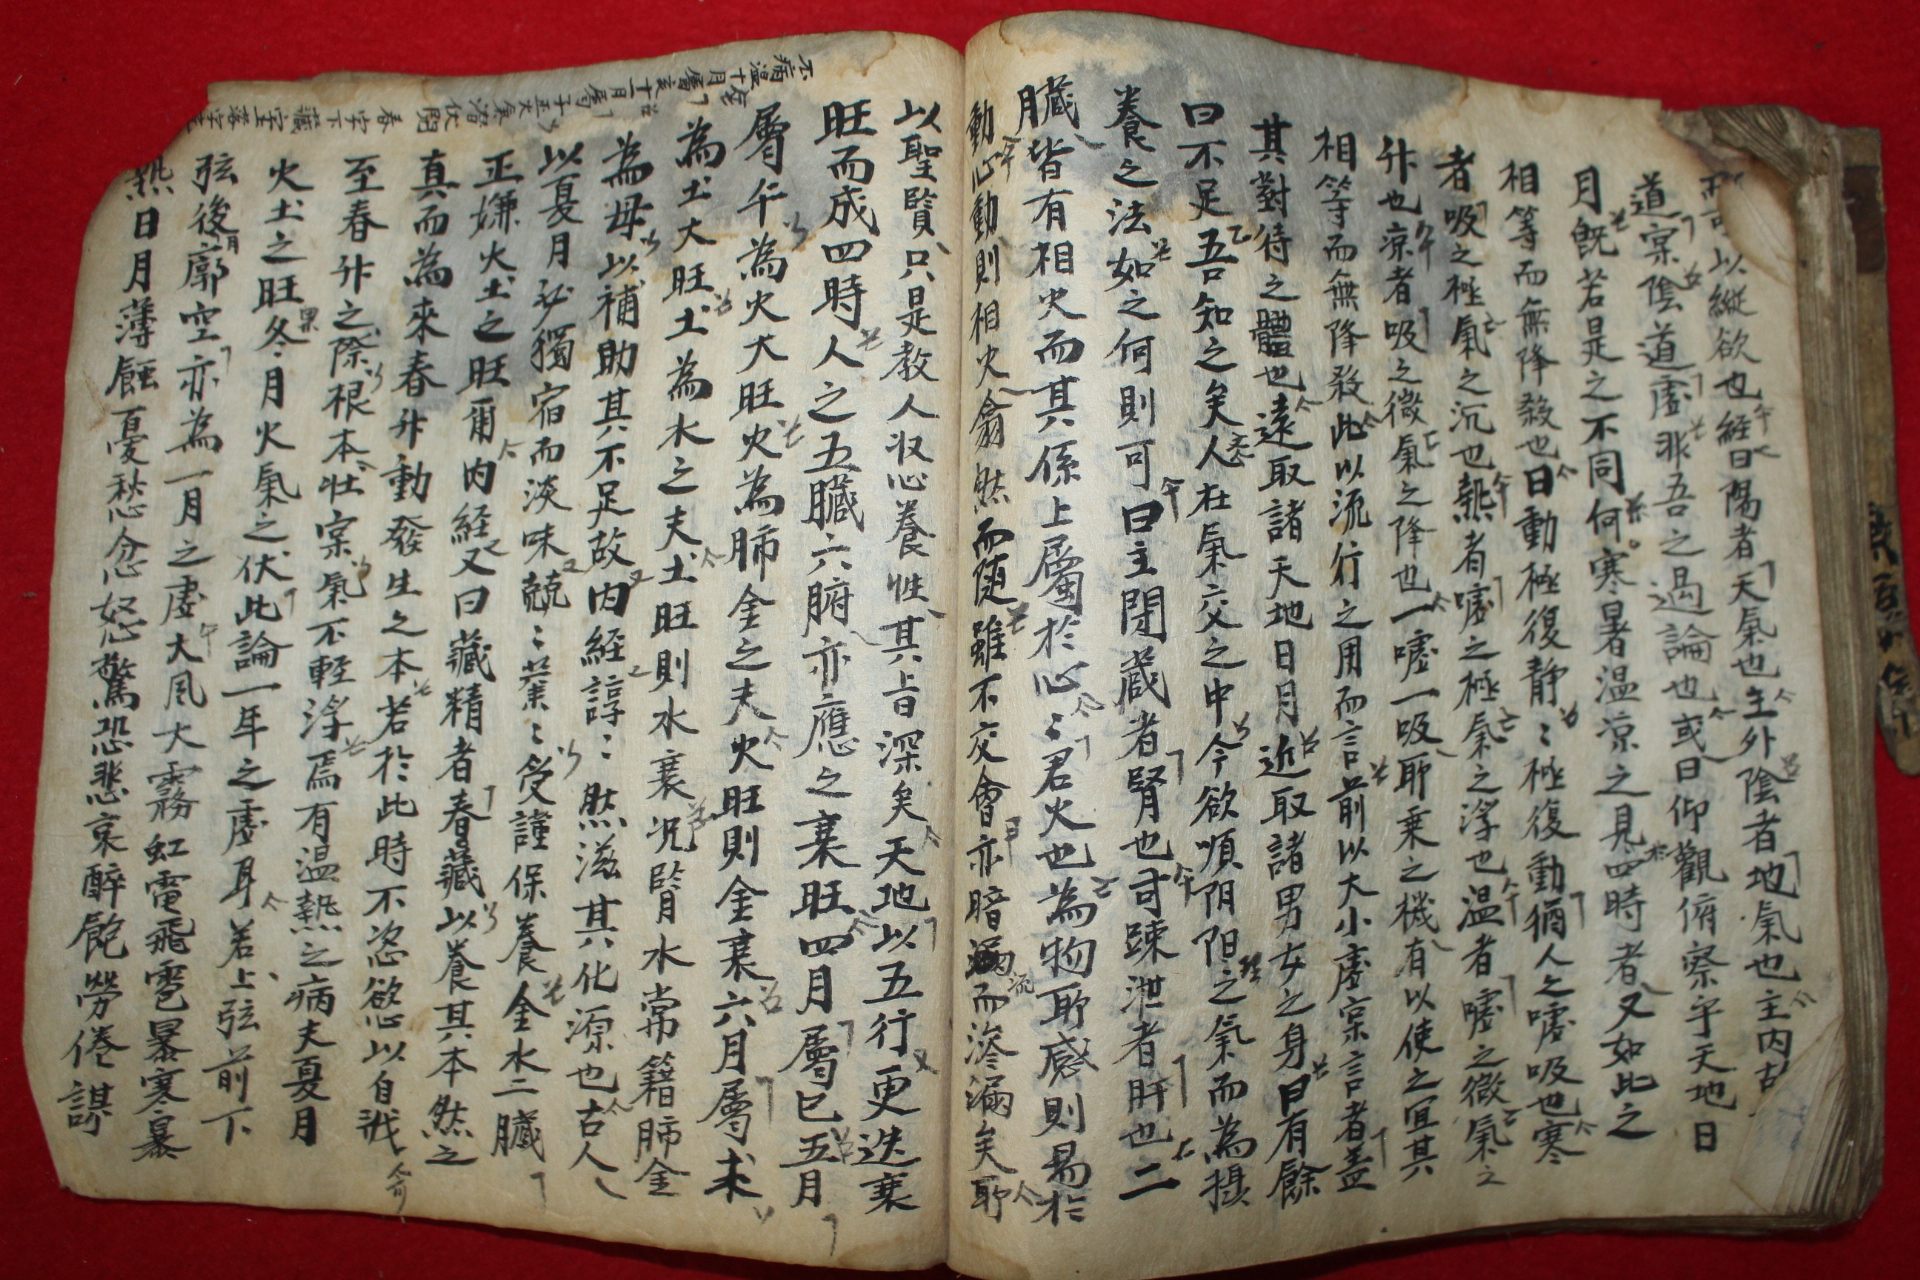 以縱欲也経曰陽者天氣也主外陰者地氣也主内古
道実陰道虛非吾之過論也或曰仰觀俯察乎天地日
月旣若是之不同何寒暑温凉之見四時者又如此之
相等而無降殺也曰動極復静〻極復動猶人之噓吸也寒
者吸之極氣之沉也熱者噓之極氣之浮也温者噓之微氣之
升也凉者吸之微氣之降也一噓一吸所乗之機有以使之宜其
相等而無降殺此以流行之用而言前以大小虛実言者盖
其對待之體也遠取諸天地日月近取諸男女之身曰有餘
曰不足吾知之矣人在氣交之中今欲順阴阳之氣而為攝
養之法如之何則可曰主閉蔵者腎也司踈泄者肝也二
臟皆有相火而其係上屬於心〻君火也為物所感則易於
動心動則相火翕然而随雖不交會亦暗流而滲漏矣所
以聖賢只是教人収心養性其旨深矣天地以五行更迭衰
旺而成四時人之五臟六腑亦應之衰旺四月屬巳五月
屬午為火大旺火為肺金之夫火旺則金衰六月屬未
為土大旺土為水之夫土旺則水衰况腎水常籍肺金
為母以補助其不足故内経諄〻然滋其化源也古人
以夏月必獨宿而淡味兢〻業〻受謹保養金水二臟
正嫌火土之旺爾内経又曰藏精者春藏以養其本然之
真而為來春升動發生之本若於此時不恣慾以自戕
至春升之際根本壮実氣不輕浮焉有温熱之病夫夏月
火土之旺冬月火氣之伏此論一年之虛耳若上弦前下
弦後月廓空亦為一月之虛大風大霧虹電飛雹暴寒暴
熱日月薄蝕憂愁忿怒驚恐悲哀醉飽勞倦謀